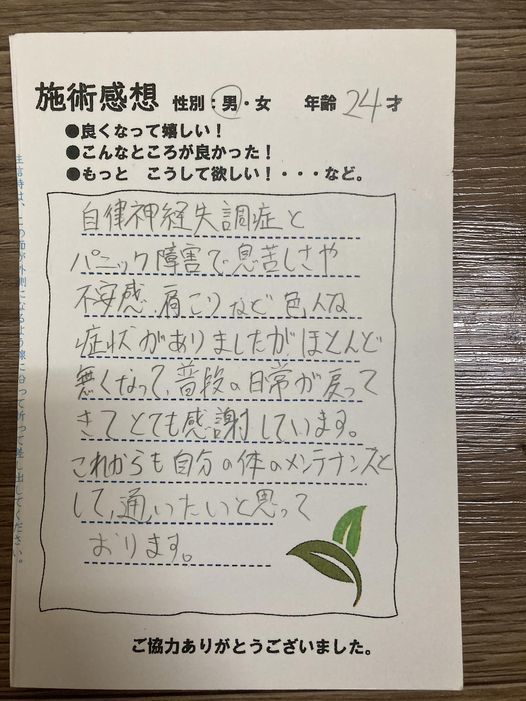 施術感想 性別：男・女 年齢 24才
●良くなって嬉しい！
●こんなところが良かった！
●もっと こうして欲しい！・・・など。
自律神経失調症と
パニック障害で息苦しさや
不安感、肩こりなど色々な
症状がありましたがほとんど
無くなって、普段の日常が戻って
きてとても感謝しています。
これからも自分の体のメンテナンスと
して、通いたいと思って
おります。
ご協力ありがとうございました。